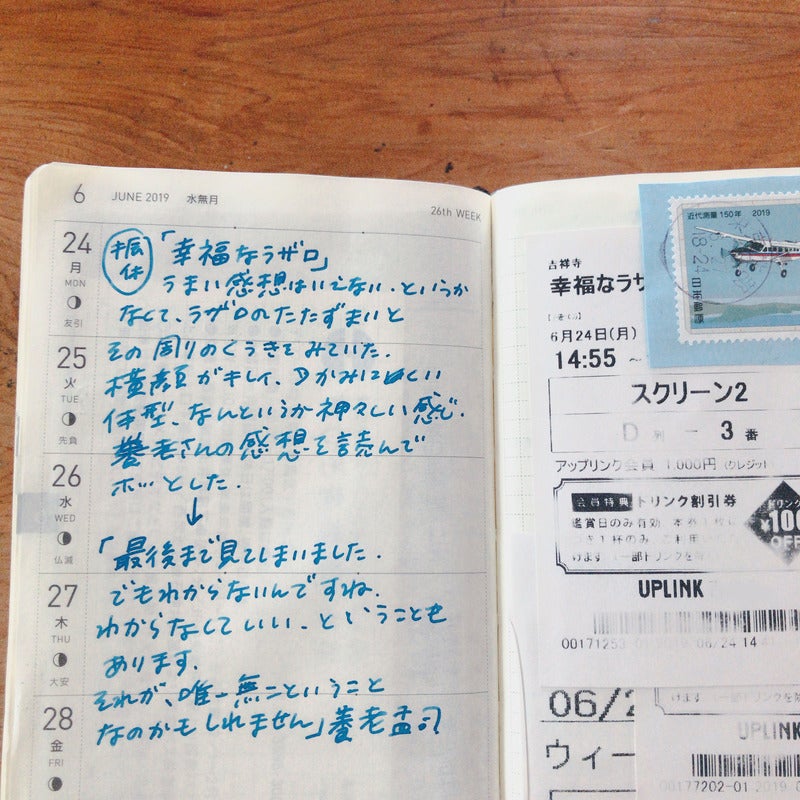 6 JUNE 2019 水無月
26th WEEK
24
月
MON
友引
25
火
TUE
先負
26
水
WED
仏滅
27
木
THU
大安
28
金
FRI
振休
「幸福なラザロ」
うまい感想はいえない、というか
なくて、ラザロのたたずまいと
その周りのくうきをみていた.
横顔がキレイ、つかみにくい
体型、なんというか神々しい感じ.
養老さんの感想を読んで
ホッとした.
↓
「最後まで見てしまいました.
でもわからないんですね.
わからなくていい、ということも
あります.
それが、唯一無二ということ
なのかもしれません」養老孟司
近代測量150年 2019
日本郵便
吉祥寺
幸福なラザ
6月24日(月)
14:55 ~
スクリーン2
D 列 - 3 番
アップリンク会員 1,000円 (クレジット)
会員特典 ドリンク割引券
鑑賞日のみ有効
¥100
OFF
UPLINK
06/2
ウィー
UPLINK